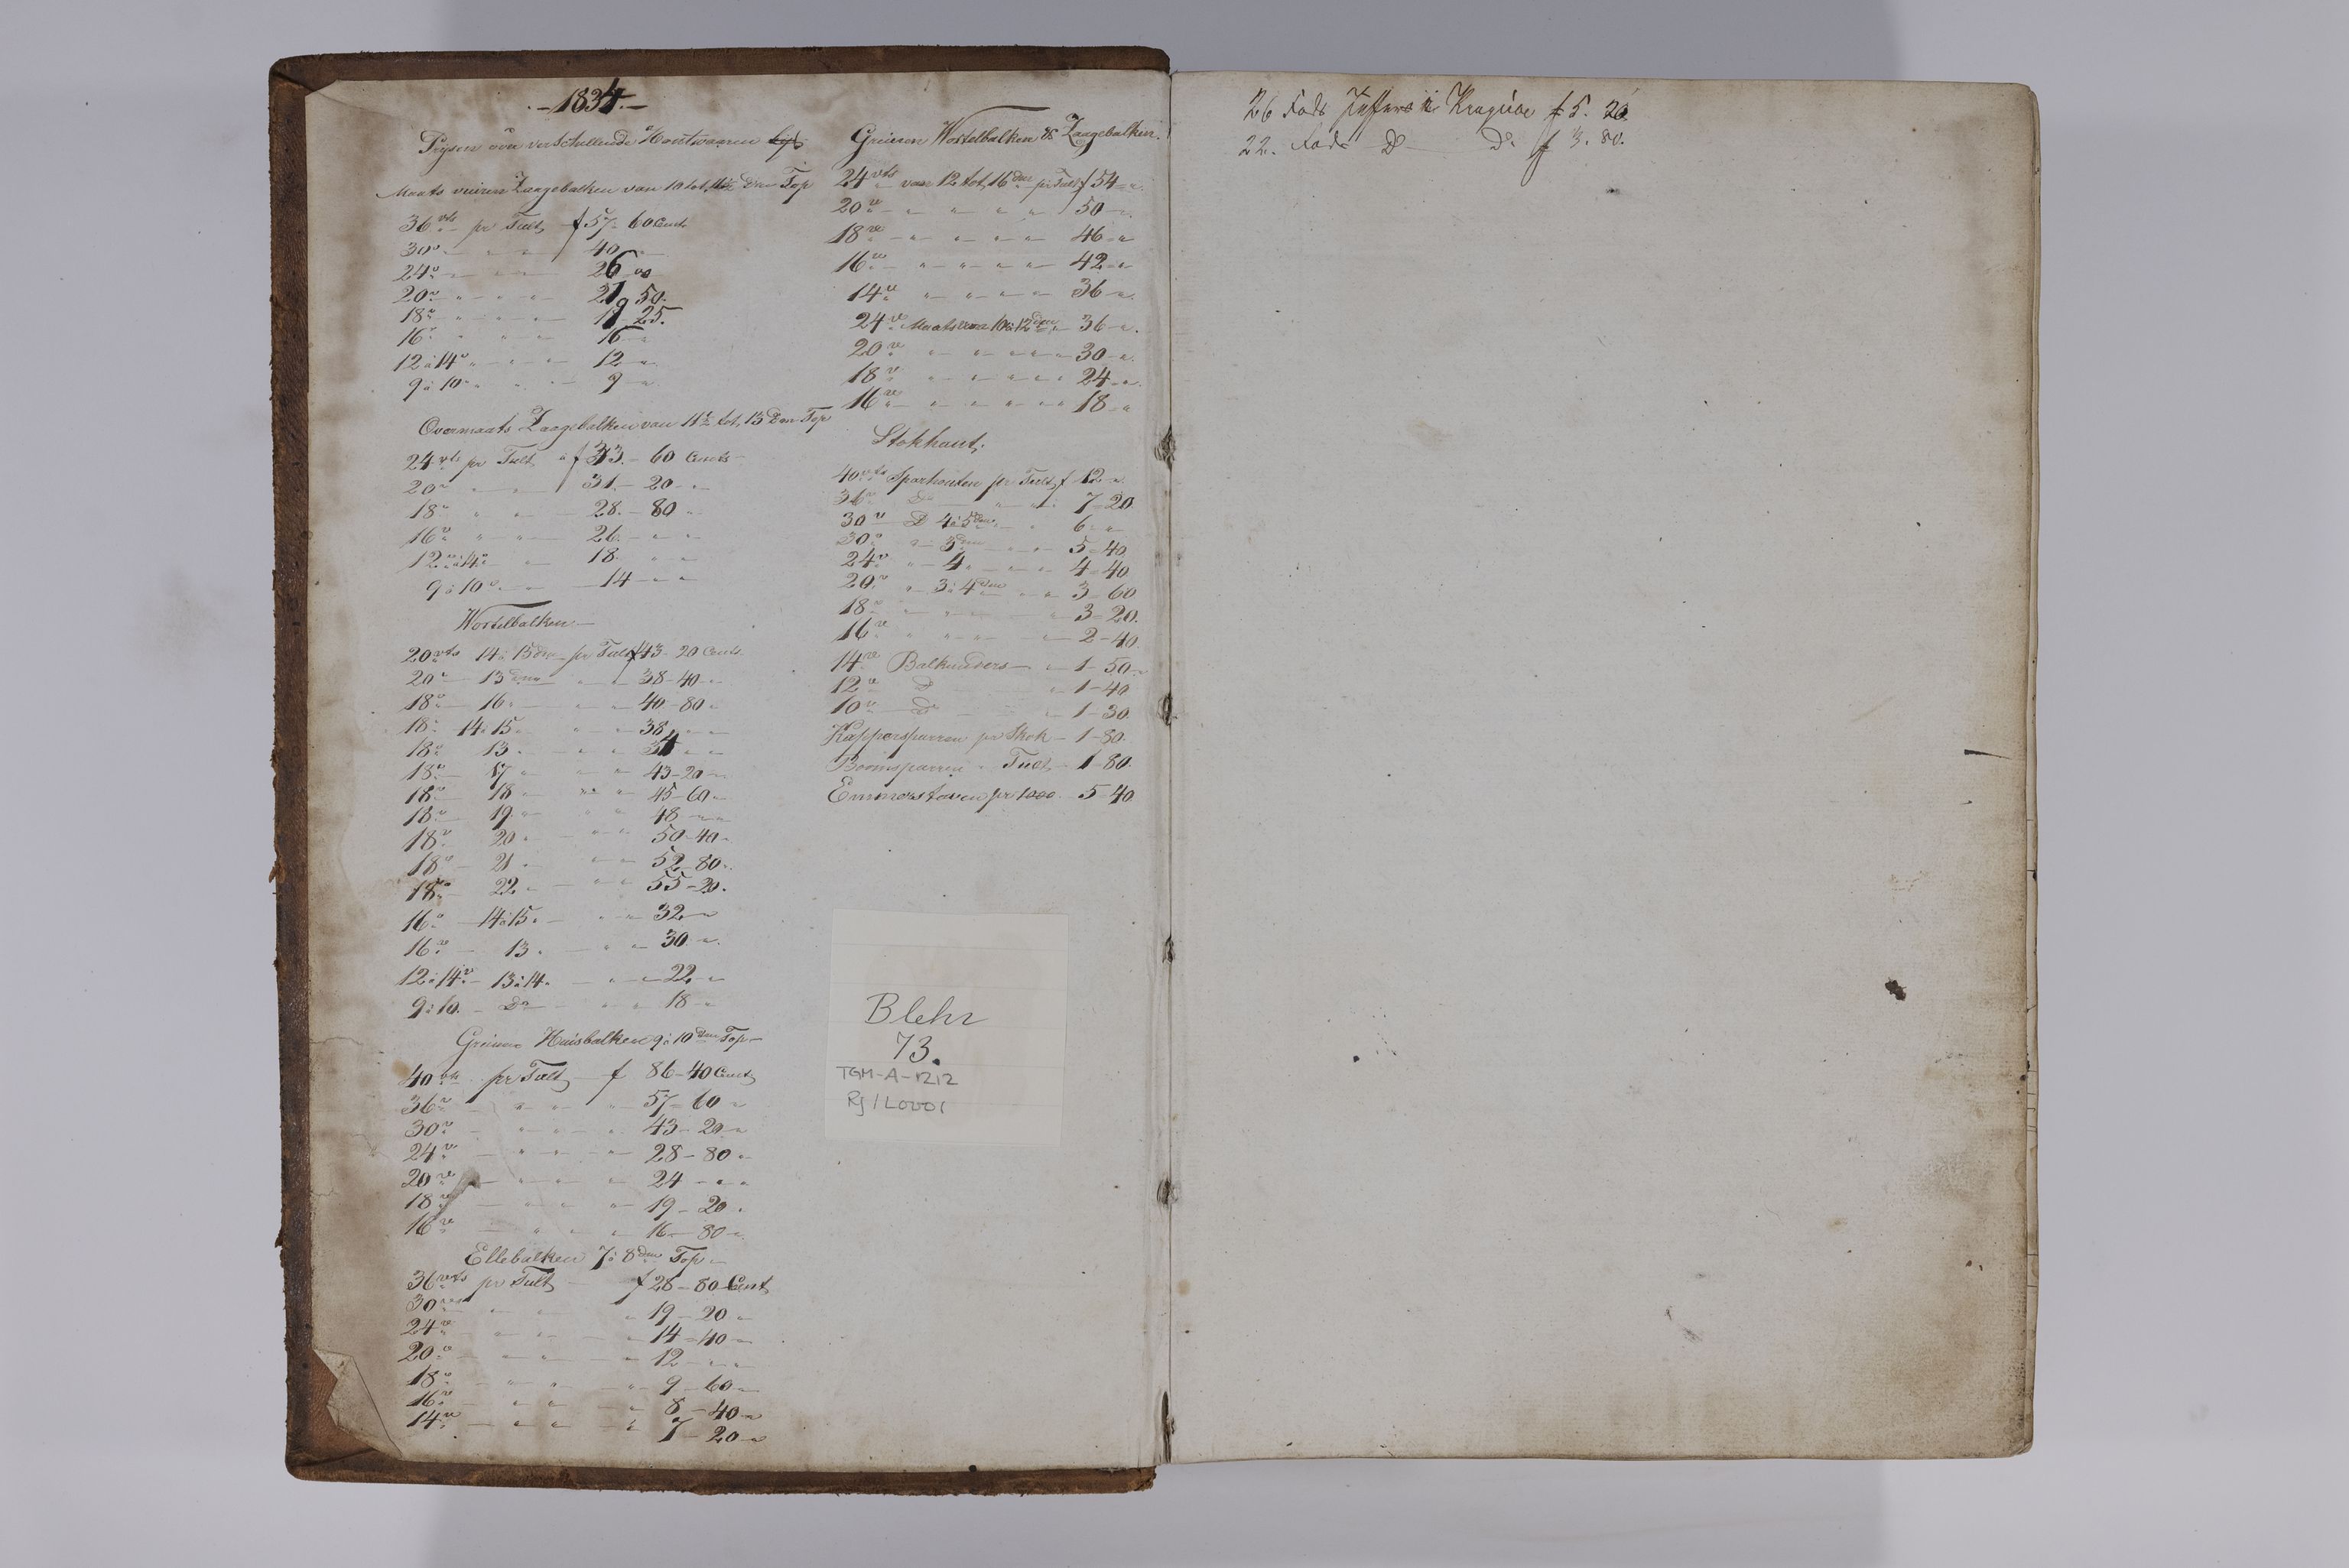 -1834.-
Prysen van verschillende Houtwaaren
Maats vuiren Zaagebalken van 10 tot 11½ dm Top
36 vts pr Tult f 57-60 Cents
30 v " " 40 "
24 v " " 26 00
20 v " " 21 50.
18 v " " 19 25.
16 v " " 16 "
12 à 14 v " " 12 "
9 à 10 " " 9 "
Overmaats Zaagebalken van 11½ tot 13 dm Top
24 vts pr Tult à f 33.-60 Cents
20 v " " 31.-20 "
18 v " " 28.-80 "
16 v " " 26.- " "
12 à 14 v " 18. " "
9 à 10 v 14 - " "
Wortelbalken
20 vts 14 à 15 dm pr Tult f 43-20 Cents
20 v 13 dm " " 38-40 "
18 v 16 " " 40-80 "
18 v 14 à 15 " " 38 " "
18 v 13 " " 34 " "
18 v 17 " " 43-20 "
18 v 18 " " 45-60 "
18 v 19 " " 48 " "
18 v 20 " " 50-40 "
18 v 21 " " 52-80 "
18 v 22 " " 55-20.
16 v 14 à 15 " " 32 "
16 v 13 " " 30 "
12 à 14 v 13 à 14 " " 22 "
9 à 10 do " " 18 "
Greinen Huisbalken 9 à 10 dm Top
40 vts pr Tult f 86-40 Cents
36 v " " " 57-60 "
30 v " " " 43-20 "
24 v " " " 28-80 "
20 v " " " 24 - " "
18 v " " " 19-20 "
16 v " " " 16-80 "
Ellebalken 7 à 8 dm Top
36 vts pr Tult f 28-80 Cent
30 v " " 19-20 "
24 v " " " 14-40 "
20 v " " " 12 - " "
18 v " " " 9-60 "
16 v " " " 8-40 "
14 v " " " 7-20 "
Greinen Wortelbalken & Zaagebalken.
24 vts van 12 tot 16 dm pr Tult f 54 "
20 v " " " " 50 "
18 v " " " " 46 "
16 v " " " " 42 "
14 v " " " " 36 "
24 v Maats van 10 à 12 dm " 36 "
20 v " " " " 30 "
18 v " " " " 24 "
16 v " " " " 18 "
Stokhout.
40 vts Sparhouten pr Tult f 12 "
36 v Do " " 7-20
30 v Do 4 à 5 dm " 6 " "
30 v " 3 dm " " 5-40
24 v " 4 " " 4-40
20 v " 3 à 4 dm " " 3-60
18 v " " " 3-20.
16 v " " " 2-40
14 v Balkunders " 1-50
12 v Do " 1-40
10 v Do " 1-30
Kappersparren pr Stok 1-80
Boomsparren " Tult 1-80.
Emmerstaven pr 1000 5-40
Blehr
73.
TGM-A-1212
Rj 1L0001
26 Fods Juffers i Kragerøe f 5. 20
22. Fods Do Do f 3. 80.